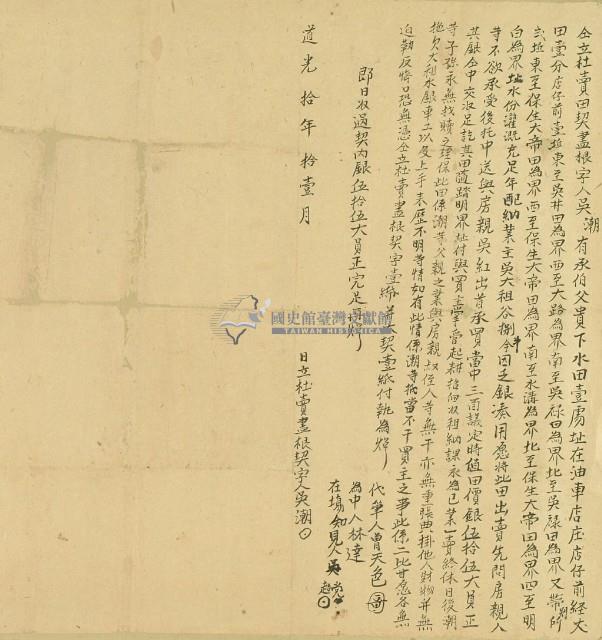 仝立杜賣田契盡根字人吳潮 有承伯父貴下水田壹處址在油車店庄店仔前經丈
田壹分店仔前壹坵東至吳井田為界西至大路為界南至吳祿田為界北至吳祿田為界又帶
坵東至保生大帝田為界西至保生大帝田為界南至水溝為界北至保生大帝田為界四至明
白為界址水份灌溉充足年配納業主吳大租谷捌斗今因乏銀湊用愿將此田出賣先問房親人
等不欲承受後托中送與房親吳紅出首承買當中三面議定時值田價銀伍拾伍大員正
其銀仝中交收足訖其田隨踏明界址付與買主掌管起耕招佃收租納課永為己業一賣終休日後潮
等子孫永無找贖之理保此田係潮等父親之業與房親叔侄人等無干亦無重張典掛他人財物并無
拖欠大租水銀車工以及上手來歷不明等情如有此情係潮等抵當不干買主之事此係二比甘愿各無
迫勒反悔口恐無憑仝立杜賣盡根契字壹紙 契壹紙付執為炤
即日收過契內銀伍拾伍大員正完足再炤
代筆人曾天色
為中人林達
在場知見人吳
日立杜賣盡根契字人吳潮
道光拾年拾壹月
國史館臺灣文獻館
TAIWAN HISTORICA